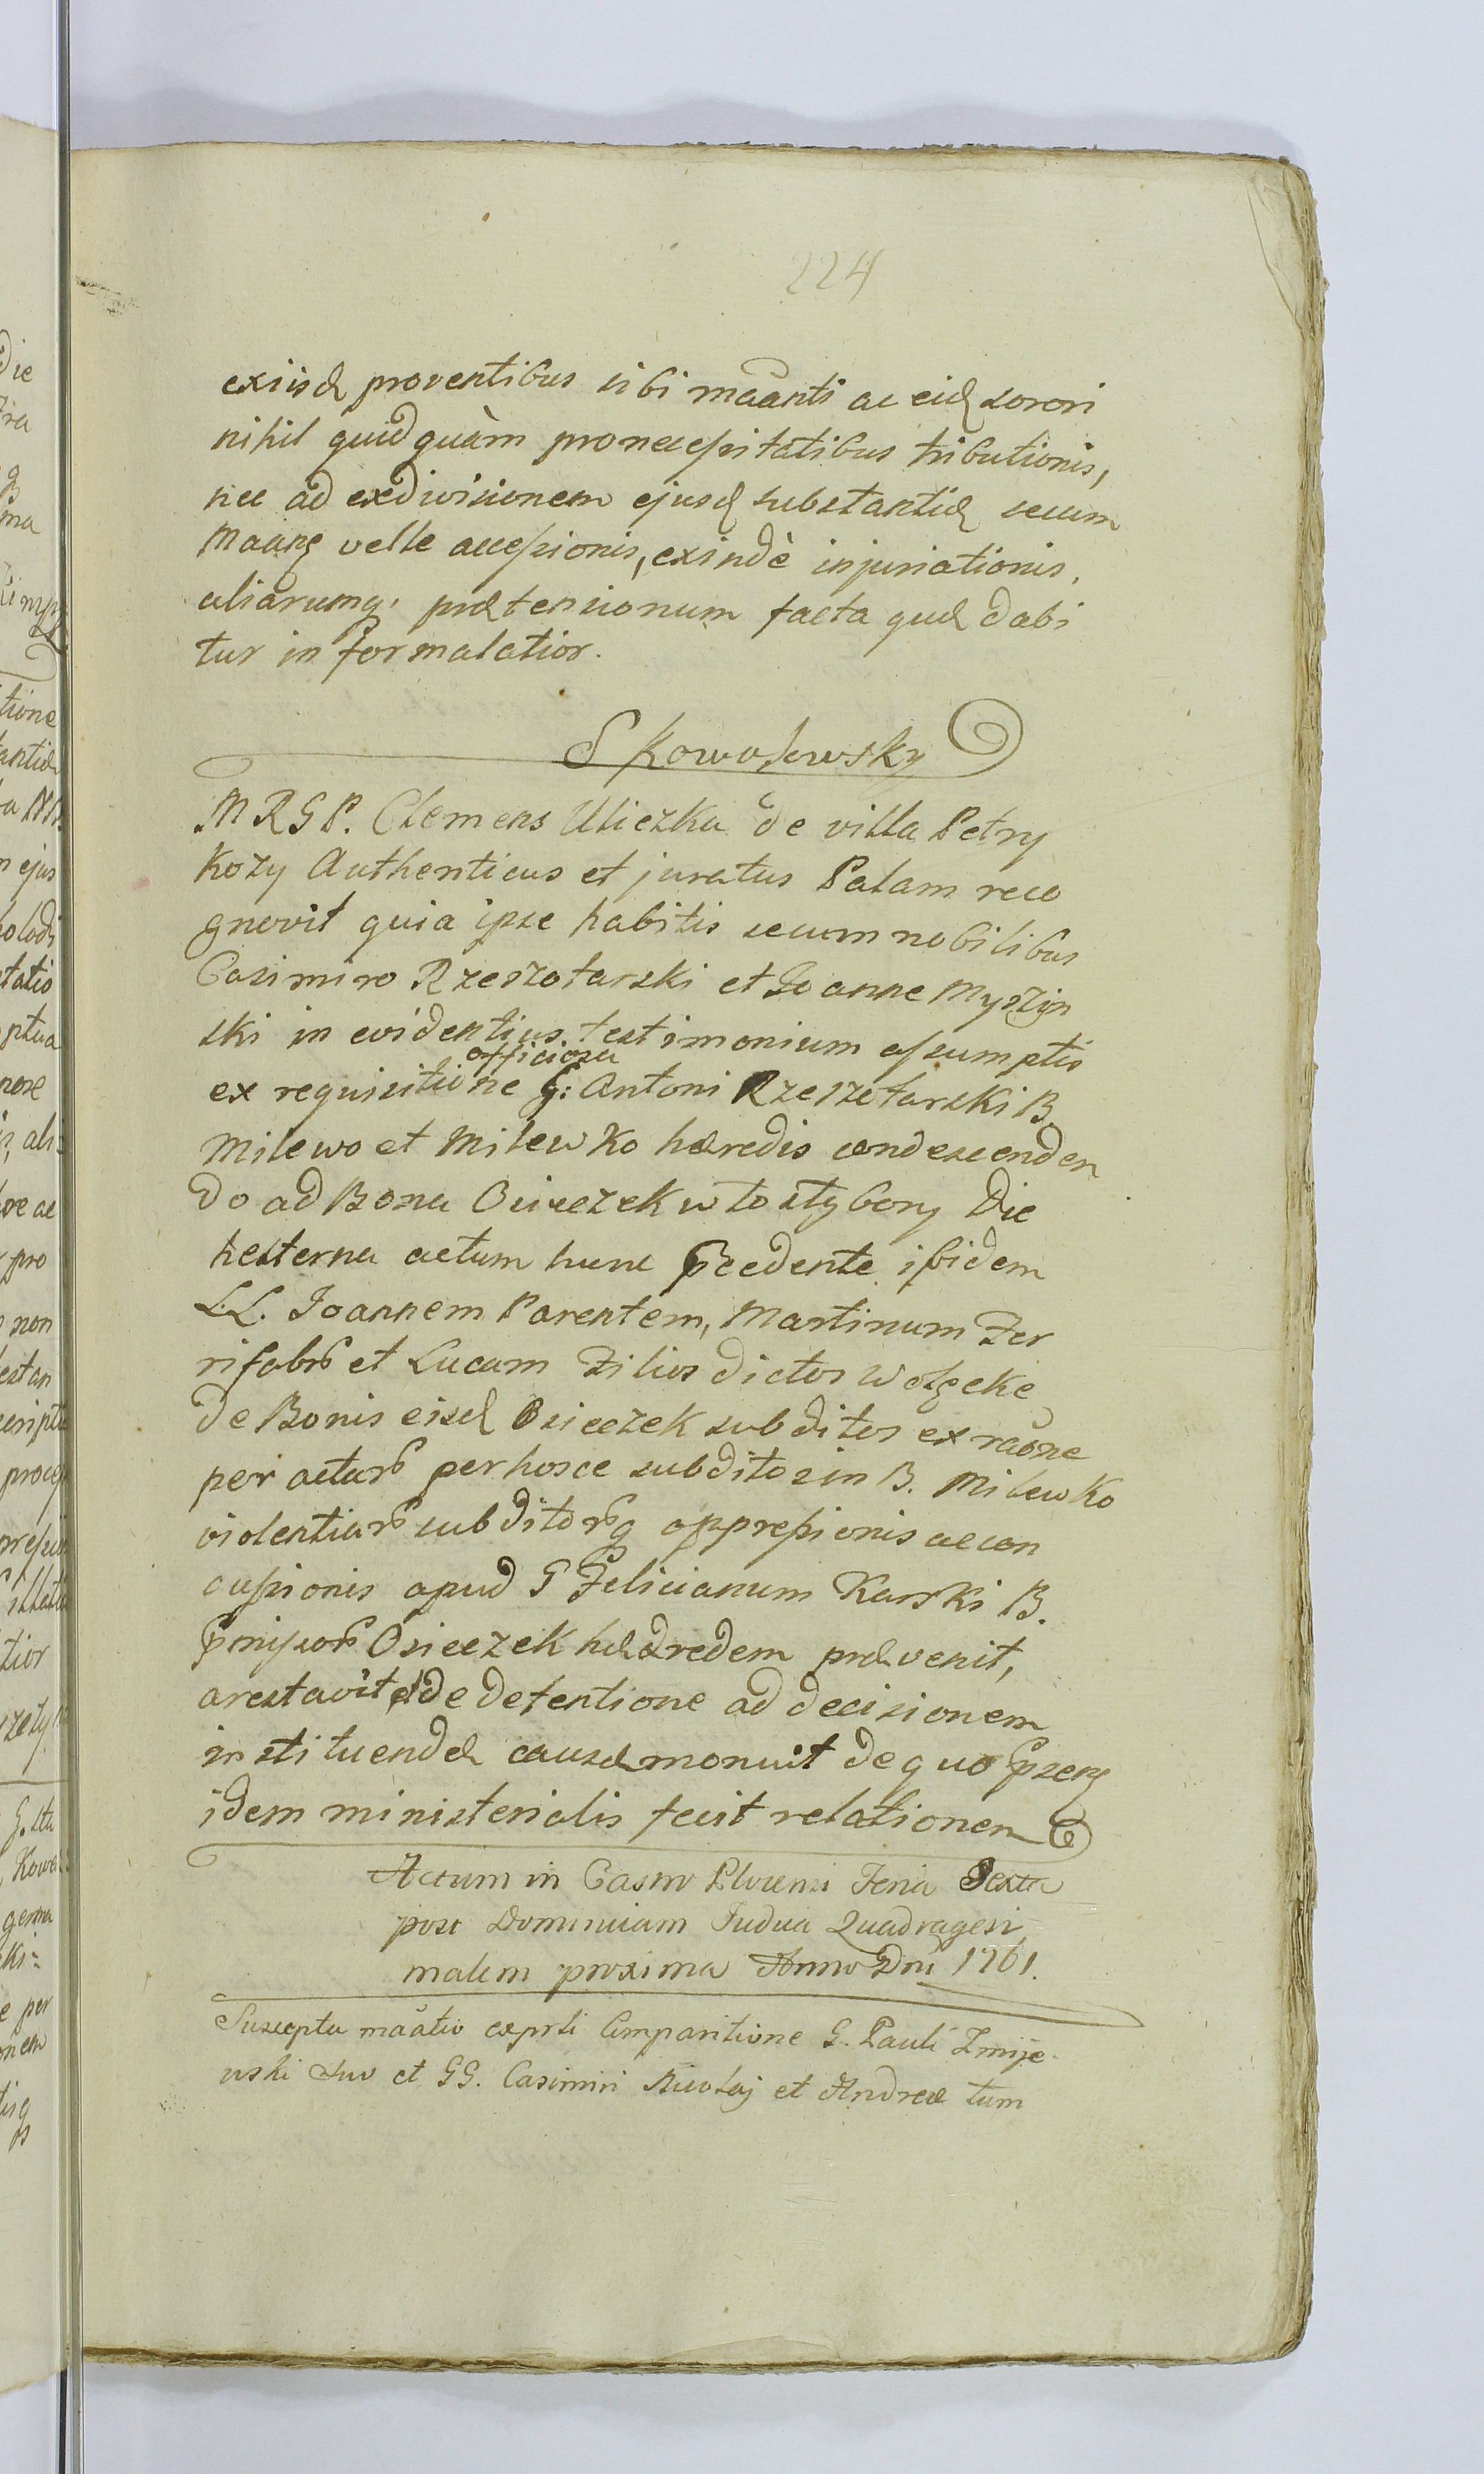 224
exiisd proventibus sibi maanti ac eid sorori
nihil quidquàm pro necessitatibus tributionis,
nec ad exdivisionem ejusd substantiæ secum
Maang velle accessionis, exindè injuriationis,
aliarumq prætensionum facta quæ dabi
tur in forma latior.
Skowolewsky
MRGP. Clemens Uliczka de villa Petry
kozy Authenticus et juratus Palam reco
gnovit quia ipse habitis secum nobilibus
Casimiro Rzeszotarski et Joanne Myszyn
ski in evidentius testimonium assumptis
officiosa
ex requisitione G: Antoni Rzeszotarski B
Milewo et Milewko hæredis condescenden
do ad Bona Osieczek w tostybory Die
hesterna actum hunc præcedente ibidem
L.L. Joannem Parentem, Martinum
et Lucam Filios dictos
de Bonis eisd Osieczek subditos ex raõne
per actar per hosce subditos in B. Milewko
violentiar subditorq oppressionis ac con
cussionis apud G Felicianum Karski B.
Osieczek hæredem prævenit,
arestavit et de detentione ad decisionem
instituendæ causæ monuit de quo
idem ministerialis fecit relationem
Actum in Castro Plocensi Feria Sexta
post Dominicam Judica Quadragesi
malem proxima Anno Dni 1761.
Suscepta maãtio exprti Comparitione G. Pauli Zmije
wski suo et GG. Casimiri Nicolaj et Andreæ tum